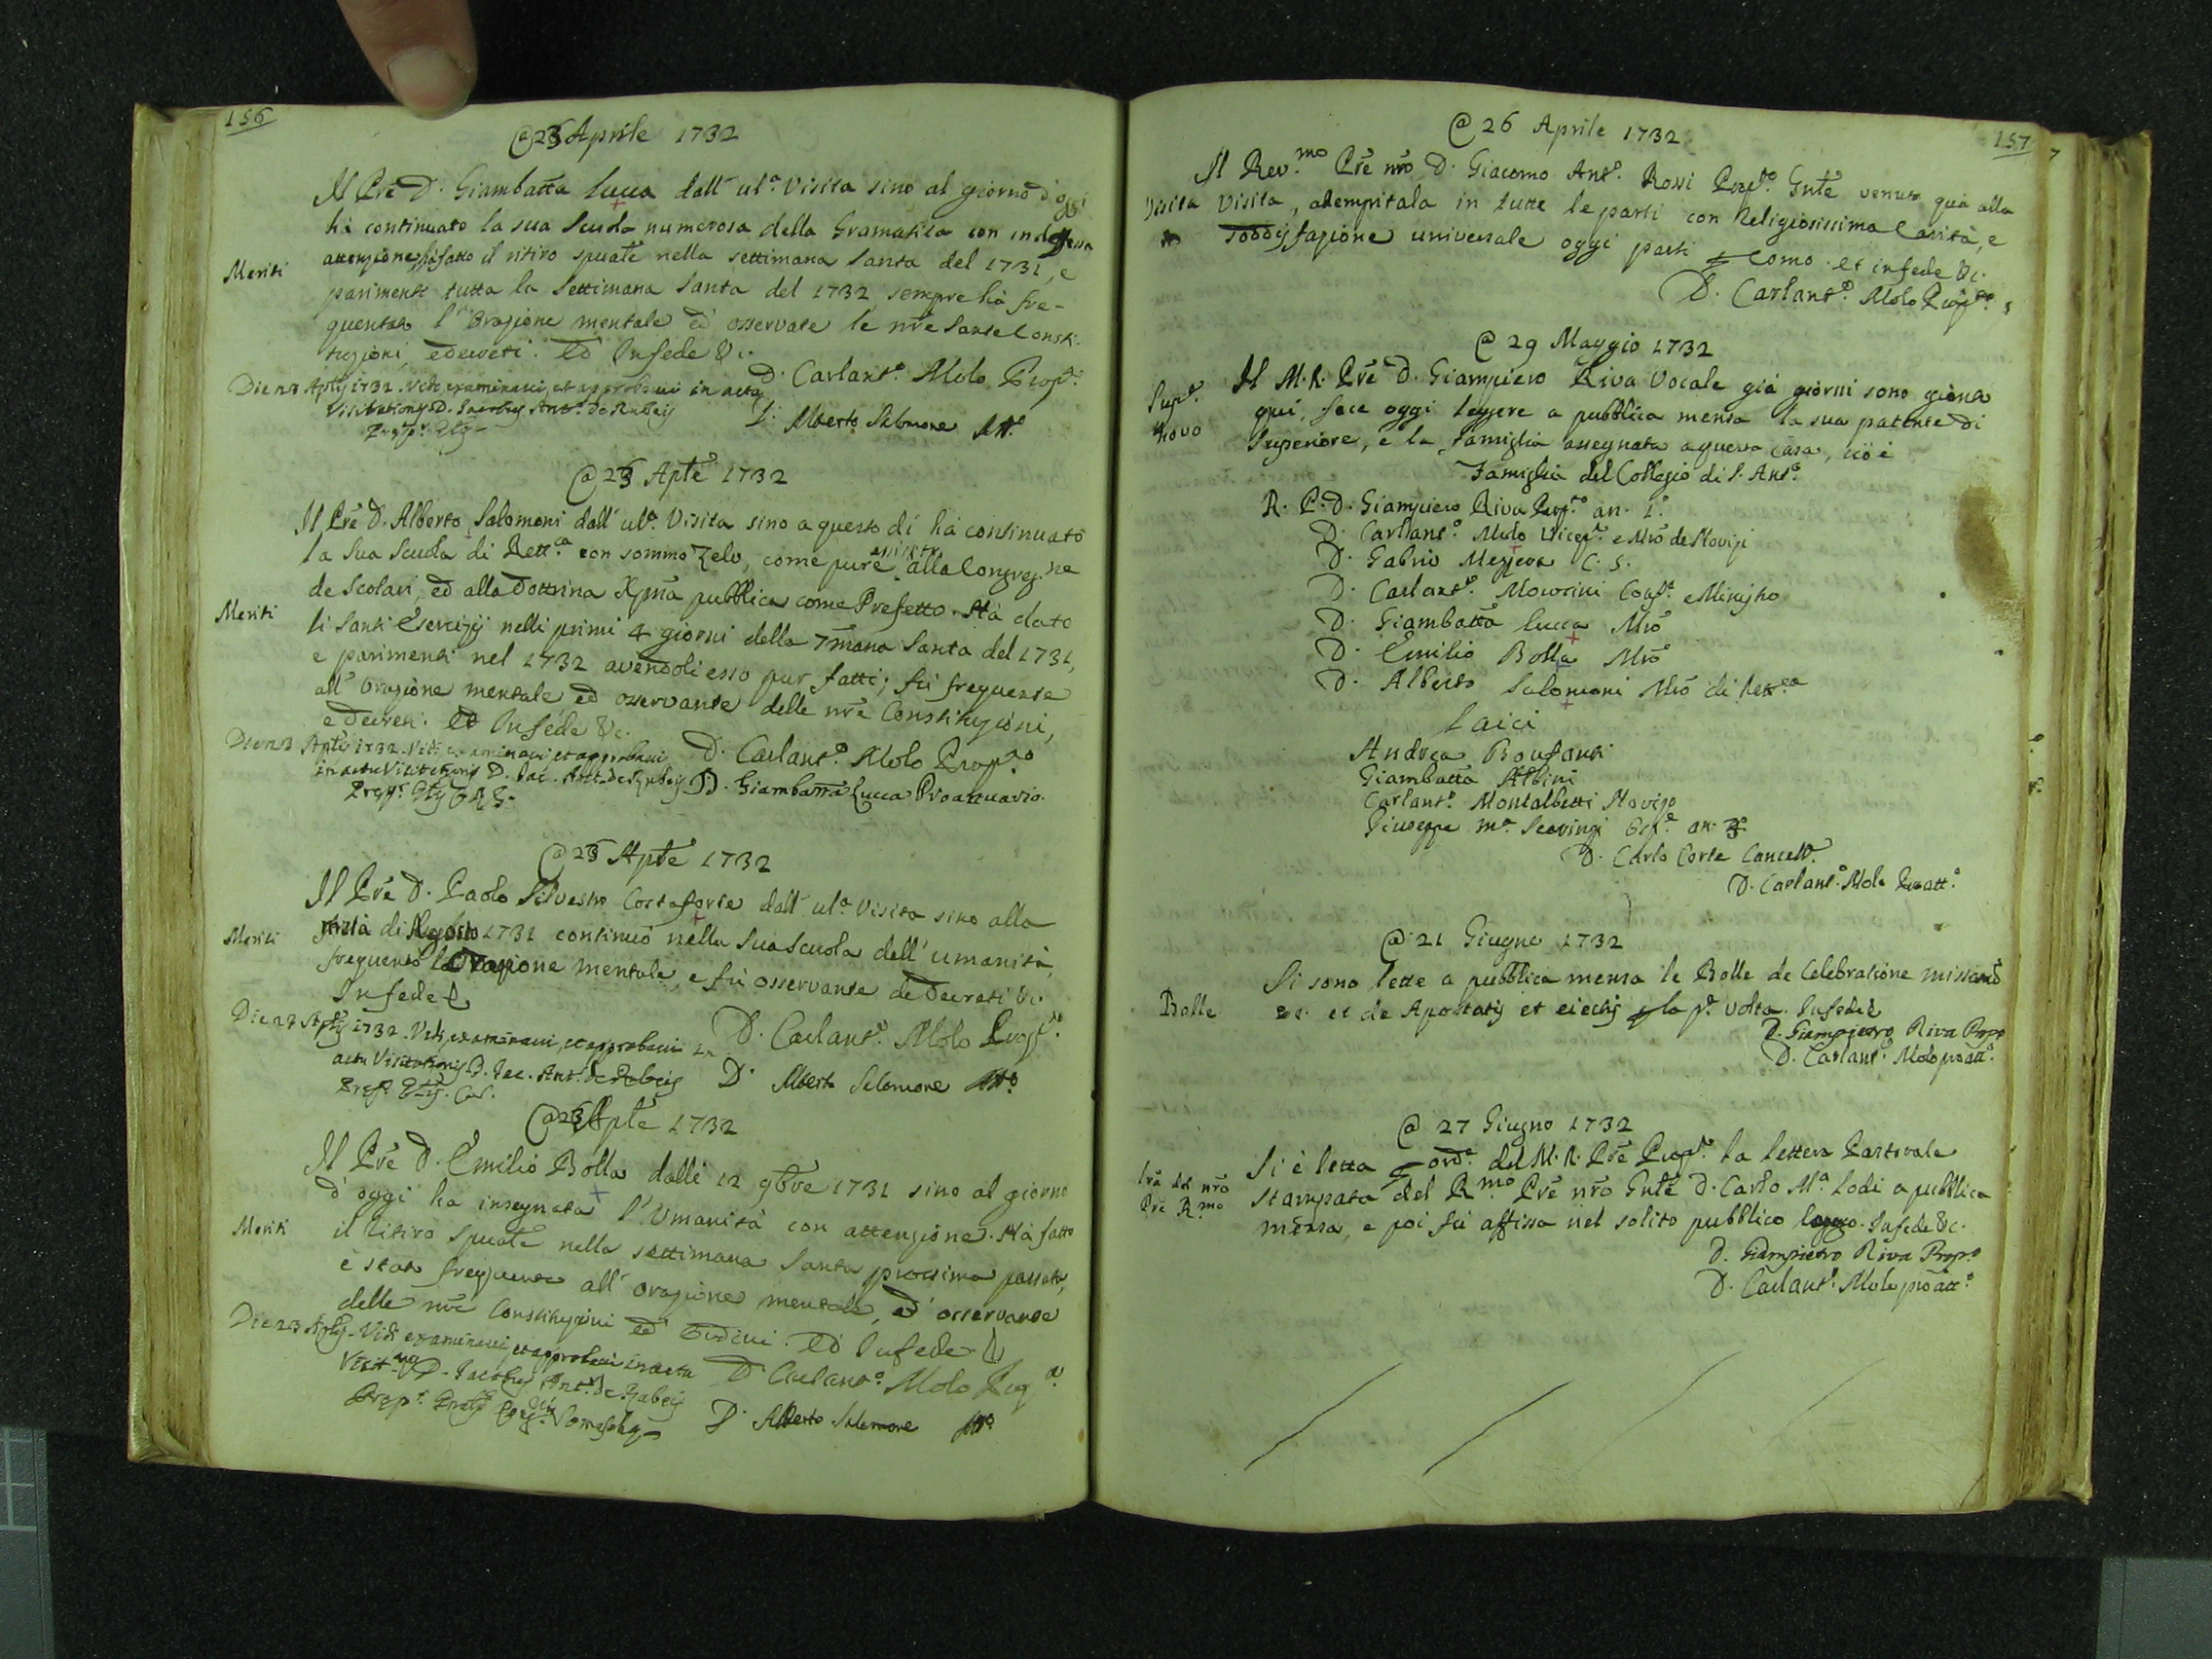 156
@ 23 Aprile 1732
Il Prē D. Giambatta Lucca dall' ulª. Visita sino al giorno d'oggi
hà continuato la sua Scuola numerosa della Gramatica con indefessa
Meriti
attenzione, hà fatto il ritiro spuale nella settimana Santa del 1731, e
parimenti tutta la Settimana Santa del 1732, sempre hà fre-
quentato l'Orazione mentale ed osservate le nrē Sante Consti-
tuzioni, e decreti. Ed In fede &c.
D. Carlantº. Molo Propº.
Die 23 Aplis 1732. Vidi examinavi, et approbavi in actu
Visitationis D. Jacobus Antº. de Rubeis
D. Alberto Salomone Attº
@ 23 Aplē 1732
Il Prē D. Alberto Salomoni dall' ulª. Visita sino a questo dì hà continuato
la sua Scuola di Rettcª con sommo Zelo, come pure assistito alla Congregne
de Scolari, ed alla Dottrina Xpnā pubblica come Prefetto. Hà dato
Meriti
li Santi Esercizij nelli primi 4 giorni della 7mana Santa del 1731,
e parimenti nel 1732 avendoli esso pur fatti; fù frequente
all' orazione mentale, ed osservante delle nrē Constituzioni,
e decreti. Ed In fede &c.
D. Carlantº. Molo Propº
Die 23 Aplis 1732. Vidi examinavi et approbavi
in actu Visitationis D. Jac. Ant. de Rubeis
D. Giambatta Lucca Proattuario.
@ 23 Aplē 1732
Il Prē D. Paolo Silvestro Costaforte dall' ulª. Visita sino alla
metà di Agosto 1731 continuò nella sua Scuola dell' umanità,
Meriti
frequentò l'Orazione mentale, e fù osservante de Decreti &c.
In fede &c
D. Carlantº. Molo Propº.
Die 23 Aplis 1732. Vidi, examinavi, et approbavi in
actu Visitationis D. Jac. Antº. de Rubeis
D. Alberto Salomone Attº
@ 23 Aplē 1732
Il Prē D. Emilio Bolla dalli 12 9bre 1731 sino al giorno
d'oggi ha insegnata l'Umanità con attenzione. Hà fatto
Meriti
il ritiro spuale nella settimana Santa prossima passata,
è stato frequente all' orazione mentale, ed osservante
delle nrē Constituzioni ed Ordini. Ed In fede &c
Die 23 Aplis. Vidi examinavi et approbavi in actu
D. Carlantº. Molo Propº.
D. Jacobus Antº. de Rubeis
D. Alberto Salomone Attº
157
@ 26 Aprile 1732
Il Rev.mo Prē nrō D. Giacomo Antº. Rossi Propº. Gnlē venuto quà alla
Visita
Visita, adempitala in tutte le parti con Religiosissima Carità, e
soddisfazione universale oggi partì p Como. Et in fede &c.
D. Carlantº. Molo Propº.
@ 29 Maggio 1732
Supº. novo
Il M. R. Prē D. Giampiero Riva Vocale già giorni sono giunto
quì, fece oggi leggere a pubblica mensa la sua patente di
Superiore, e la famiglia assegnata a questa Casa, ciò è
Famiglia del Collegio di S. Antº.
R. P. D. Giampiero Riva Propº. an. 1º.
D. Carlantº. Molo Vicepº. e Mrō de Novizi
D. Gabrio C. S.
D. Carlantº. Confº. e Ministro
D. Giambatta Lucca Mrō
D. Emilio Bolla Mrō
D. Alberto Salomoni Mrō di Rettcª
Laici
Andrea Bonfanti
Giambatta Albini
Carlantº. Montalbetti Novizo
Giuseppe Mª. an. 3º
D. Carlo Corte Cancellº.
D. Carlantº. Molo Proattº.
@ 21 Giugno 1732
Bolle
Si sono lette a pubblica mensa le Bolle de Celebratione missarū
&c. et de Apostatis et eiectis p la pª. volta. In fede &c
D. Giampietro Riva Propº
D. Carlantº. Molo proattº.
@ 27 Giugno 1732
Lrā del nrō Prē R.mo
Si è letta p ordº. del M. R. Prē Propº. la lettera Pastorale
stampata del R.mo Prē nrō Gnlē D. Carlo Mª. Lodi a pubblica
mensa, e poi fù affissa nel solito pubblico loogo. In fede &c.
D. Giampietro Riva Propº
D. Carlantº. Molo proattº.